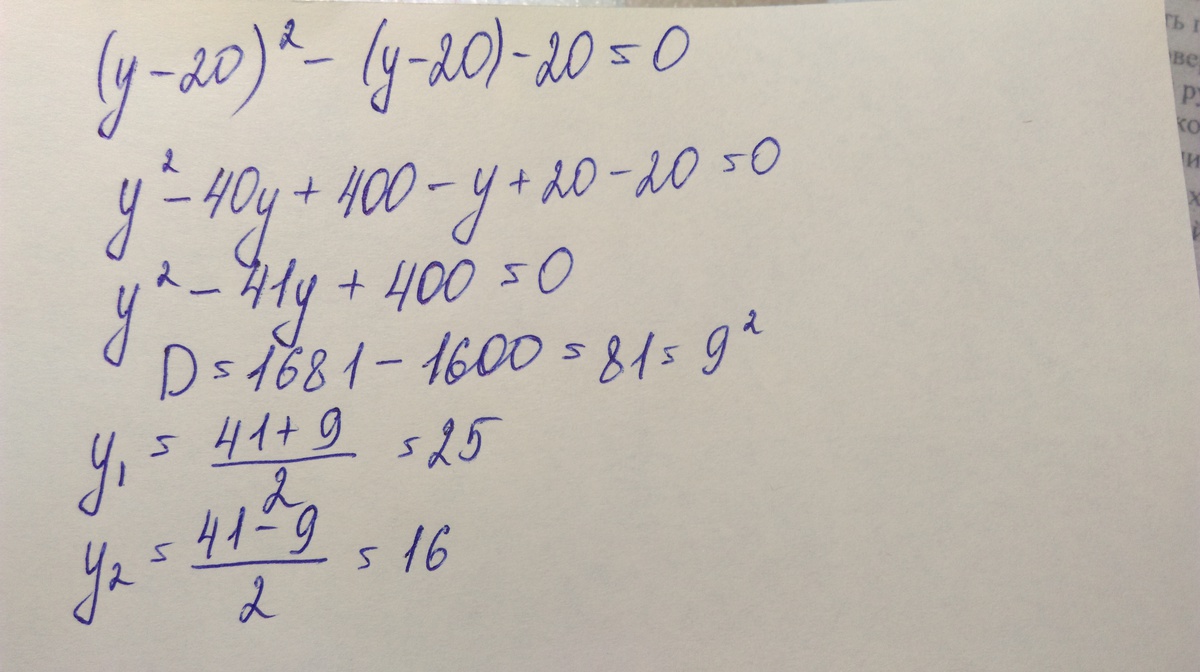 (y-20)² - (y-20) - 20 = 0
y² - 40y + 400 - y + 20 - 20 = 0
y² - 41y + 400 = 0
D = 1681 - 1600 = 81 = 9²
y₁ = (41+9)/2 = 25
y₂ = (41-9)/2 = 16